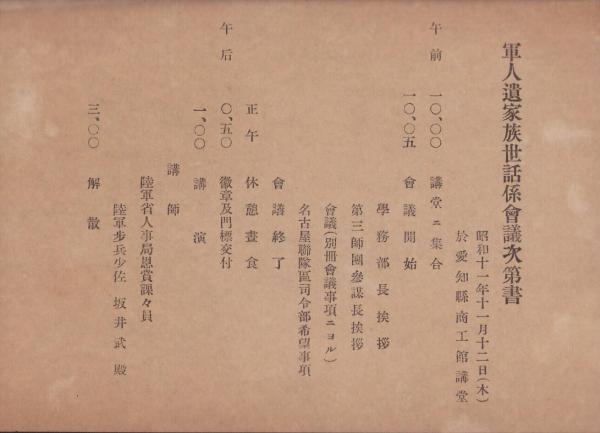 軍人遺家族世話係會議次第書
昭和十一年十一月十二日(木)
於愛知縣商工館講堂
午前 一〇、〇〇 講堂ニ集合
一〇、〇五 會議開始
學務部長挨拶
第三師團參謀長挨拶
會議(別冊會議事項ニヨル)
名古屋聯隊區司令部希望事項
會議終了
正午 休憩晝食
午后 〇、五〇 徽章及門標交付
一、〇〇 講演
講師
陸軍省人事局恩賞課々員
陸軍步兵少佐 坂井武殿
三、〇〇 解散